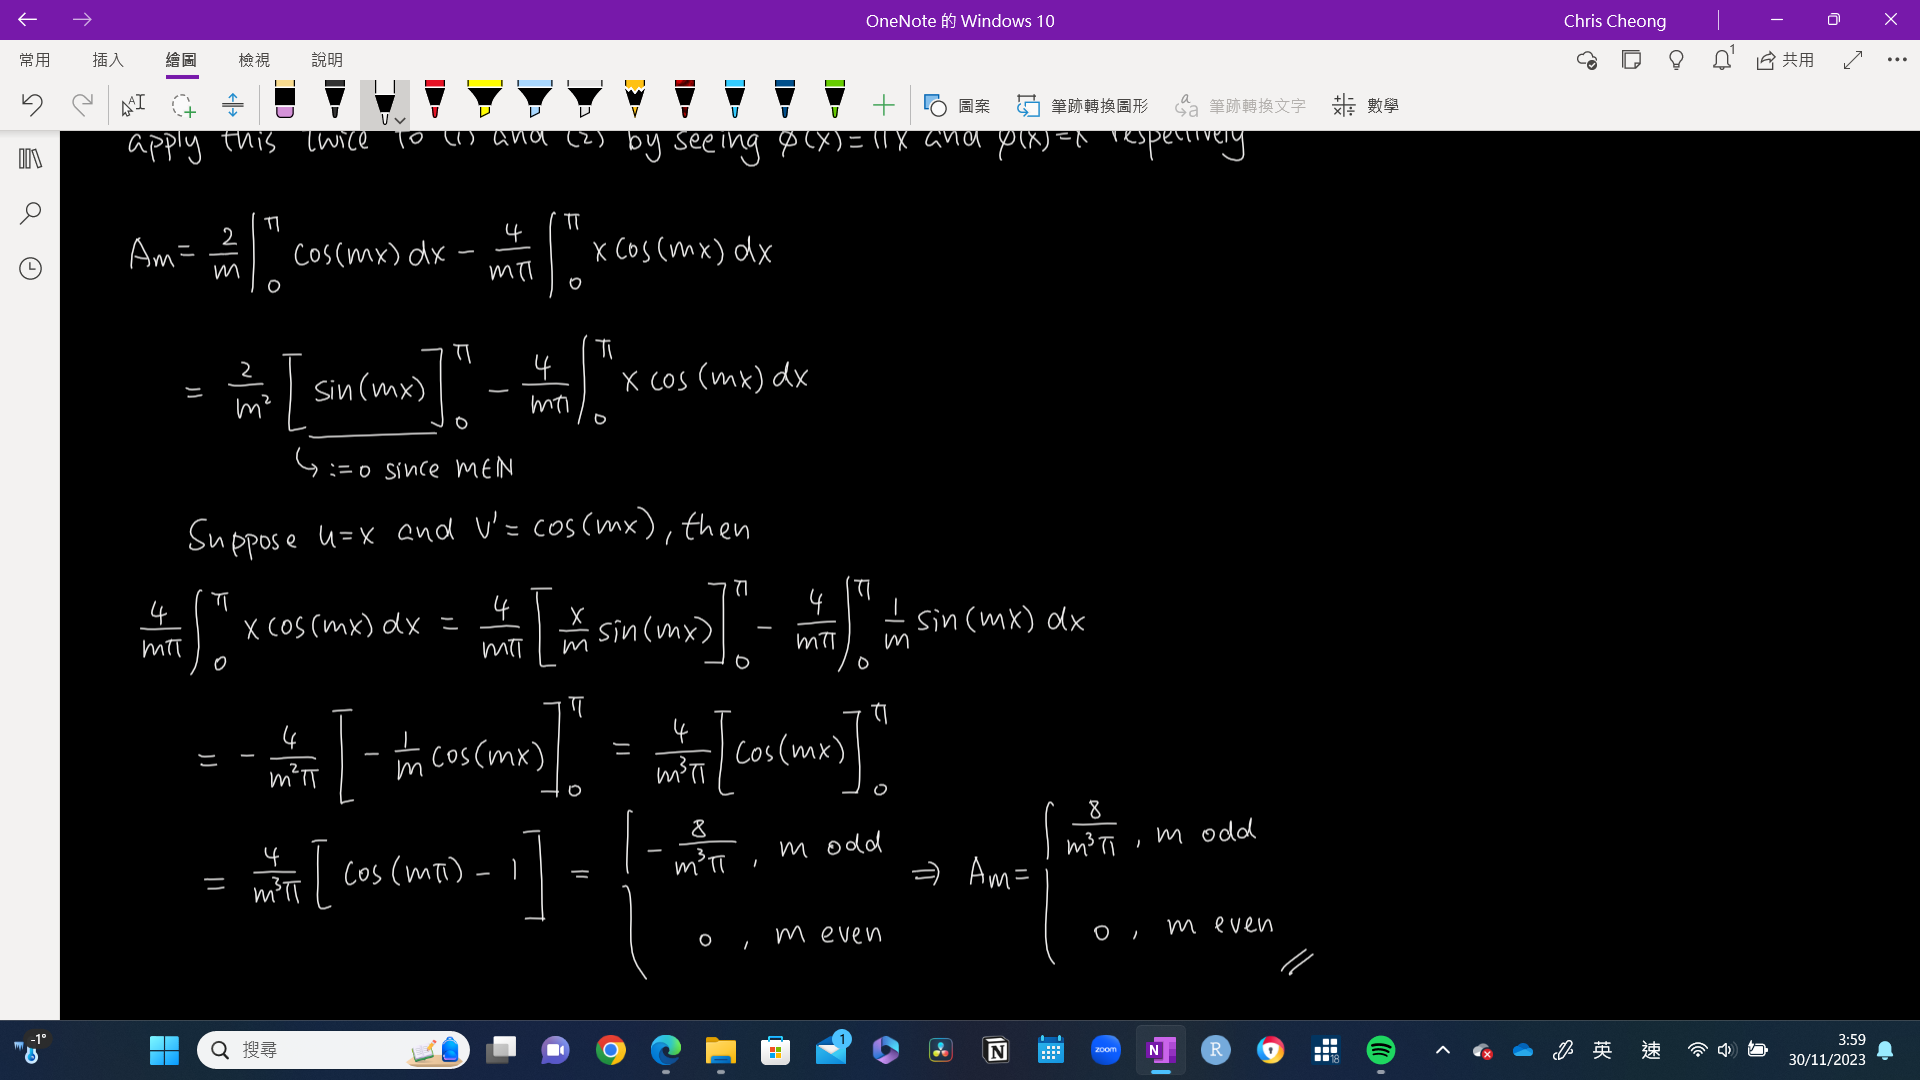 OneNote 的 Windows 10
Chris Cheong
常用 插入 繪圖 檢視 說明
1
共用
圖案 筆跡轉換圖形 筆跡轉換文字 數學
apply this twice to (1) and (2) by seeing φ(x)=πx and φ(x)=x respectively
Am = 2/m ∫₀^π cos(mx) dx − 4/(mπ) ∫₀^π x cos(mx) dx
= 2/m² [sin(mx)]₀^π − 4/(mπ) ∫₀^π x cos(mx) dx
↳ := 0 since m∈ℕ
Suppose u=x and v'= cos(mx), then
4/(mπ) ∫₀^π x cos(mx) dx = 4/(mπ) [x/m sin(mx)]₀^π − 4/(mπ) ∫₀^π 1/m sin(mx) dx
= − 4/(m²π) [− 1/m cos(mx)]₀^π = 4/(m³π) [cos(mx)]₀^π
= 4/(m³π) [cos(mπ) − 1] = { − 8/(m³π), m odd ⇒ Am = { 8/(m³π), m odd
0, m even 0, m even
-1°
搜尋
1
zoom
N
R
18
英
速
3:59
30/11/2023